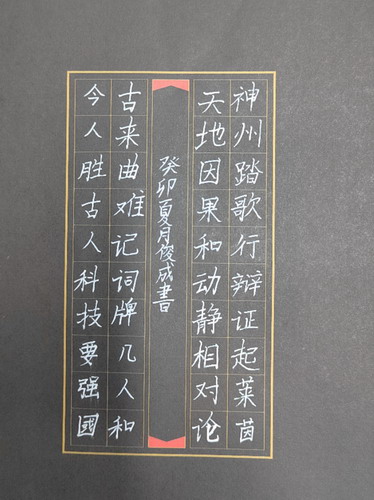 神州踏歌行辩证起莱茵
天地因果和动静相对论
癸卯夏月俊成書
古来曲难记词牌几人和
今人胜古人科技要强國